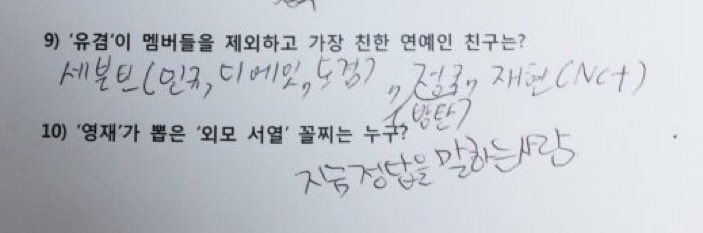 9) '유겸'이 멤버들을 제외하고 가장 친한 연예인 친구는?
세븐틴(민규, 디에잇, 도겸), 정국, 재현(NCT)
(방탄)
10) '영재'가 뽑은 '외모 서열' 꼴찌는 누구?
지금 정답을 말하는 사람